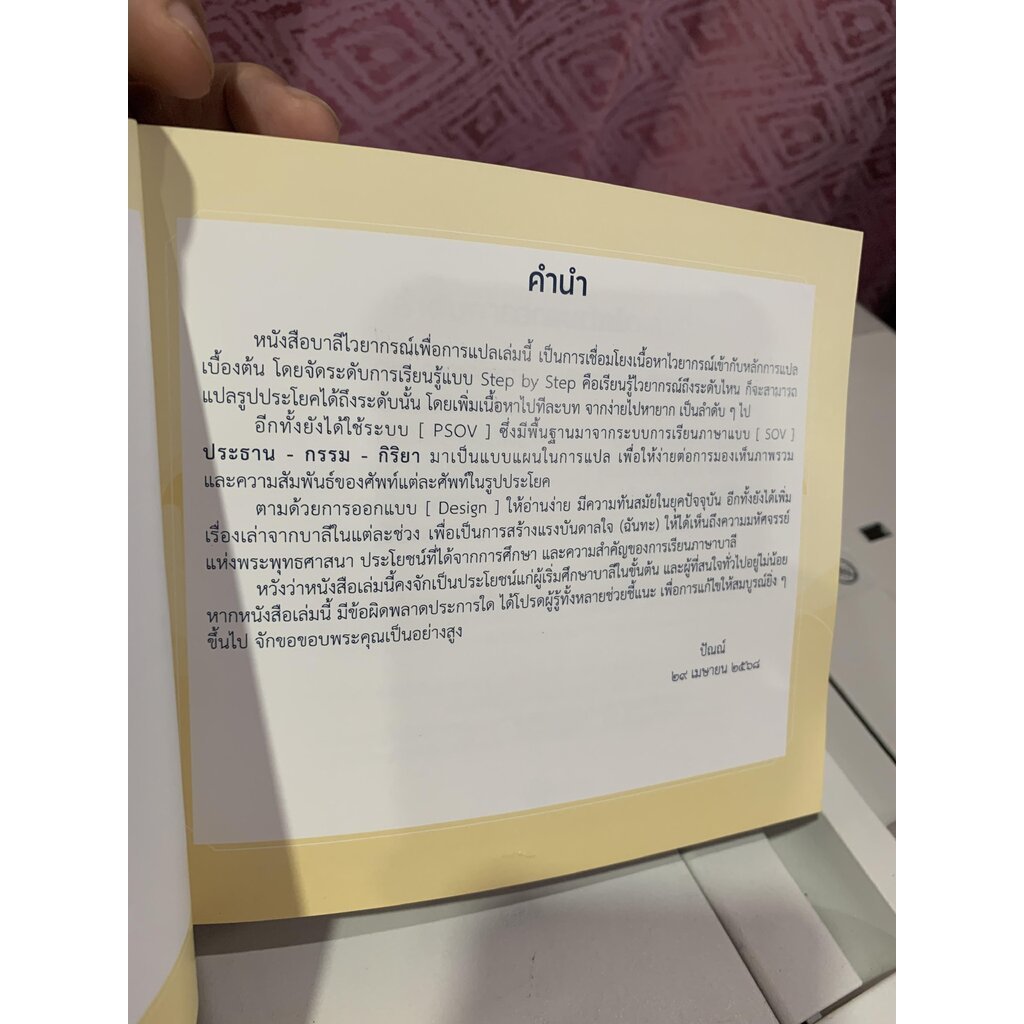 คำนำ
หนังสือบาลีไวยากรณ์เพื่อการแปลเล่มนี้ เป็นการเชื่อมโยงเนื้อหาไวยากรณ์เข้ากับหลักการแปล
เบื้องต้น โดยจัดระดับการเรียนรู้แบบ Step by Step คือเรียนรู้ไวยากรณ์ถึงระดับไหน ก็จะสามารถ
แปลรูปประโยคได้ถึงระดับนั้น โดยเพิ่มเนื้อหาไปทีละบท จากง่ายไปหายาก เป็นลำดับ ๆ ไป
อีกทั้งยังได้ใช้ระบบ [ PSOV ] ซึ่งมีพื้นฐานมาจากระบบการเรียนภาษาแบบ [ SOV ]
ประธาน - กรรม - กิริยา มาเป็นแบบแผนในการแปล เพื่อให้ง่ายต่อการมองเห็นภาพรวม
และความสัมพันธ์ของศัพท์แต่ละศัพท์ในรูปประโยค
ตามด้วยการออกแบบ [ Design ] ให้อ่านง่าย มีความทันสมัยในยุคปัจจุบัน อีกทั้งยังได้เพิ่ม
เรื่องเล่าจากบาลีในแต่ละช่วง เพื่อเป็นการสร้างแรงบันดาลใจ (ฉันทะ) ให้ได้เห็นถึงความมหัศจรรย์
แห่งพระพุทธศาสนา ประโยชน์ที่ได้จากการศึกษา และความสำคัญของการเรียนภาษาบาลี
หวังว่าหนังสือเล่มนี้คงจักเป็นประโยชน์แก่ผู้เริ่มศึกษาบาลีในขั้นต้น และผู้ที่สนใจทั่วไปอยู่ไม่น้อย
หากหนังสือเล่มนี้ มีข้อผิดพลาดประการใด ได้โปรดผู้รู้ทั้งหลายช่วยชี้แนะ เพื่อการแก้ไขให้สมบูรณ์ยิ่ง ๆ
ขึ้นไป จักขอขอบพระคุณเป็นอย่างสูง
ปัณณ์
๒๙ เมษายน ๒๕๖๘